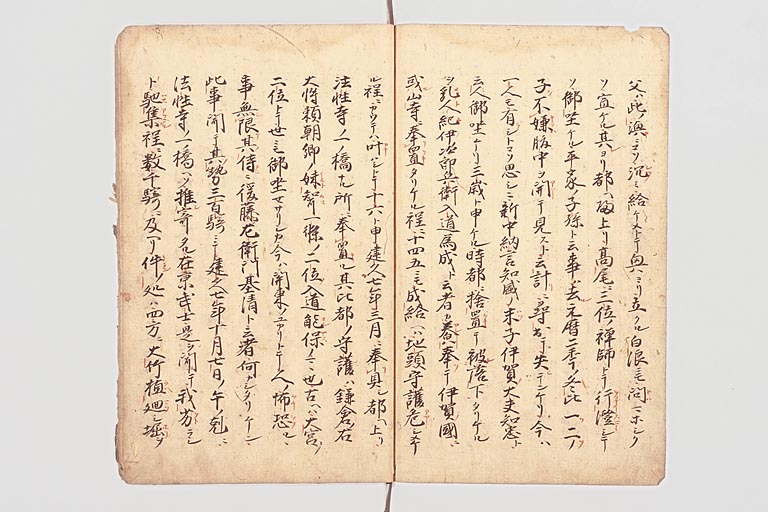 父ハ此ノ澳ニコソ沈ミ給ケメトテ奥ヨリ立クル白浪モ問ニホシク
ソ宜ケル其ヨリ都ヘ上リ髙尾ニ三位ノ禅師トテ行澄シテ
ソ御坐ケル平家ノ子孫ト云事ハ去元暦二季ノ冬比一二ノ
子不嫌腹中ヲ開テ見スト云計ニ尋出テ失テンケリ今ハ
一人モ有シトコソ思シニ新中納言知盛ノ末子伊賀大夫知忠ト
云人御坐ケリ三歳ト申ケル時都ニ捨置テ被落下タリケル
ヲ乳人紀伊次郎兵衛入道為成ト云者カ養奉テ伊賀國ニ
或山寺ニ奉置タリケル程ニ十四五ニモ成給ヘハ地頭守護危シキ
ル程ニカクテハ叶ハシトテ十六ト申建久七年三月ニ奉具シ都ヘ上リ
法性寺ノ一ノ橋ナル所ニ奉置ル其比都ノ守護ハ鎌倉右
大将頼朝卿ノ妹聟一條ノ二位入道能保ノニ也古ハ大宮ノ
二位トテ世ニモ御坐セサリシカ今ハ関東ノユカリトテ人怖恐ルヽ
事無限其侍ニ後藤左衛門基清ト云者何カシタリケン
此事聞テ其勢三百騎ニテ建久七年十月七日ノ午剋ニ
法性寺ノ一橋ヘソ推寄タル在京武士是ヲ聞テ我劣ラシ
ト馳集程ニ数千騎ニ及ヘリ件ノ処ハ四方ニ大竹植廻シ堀ヲ